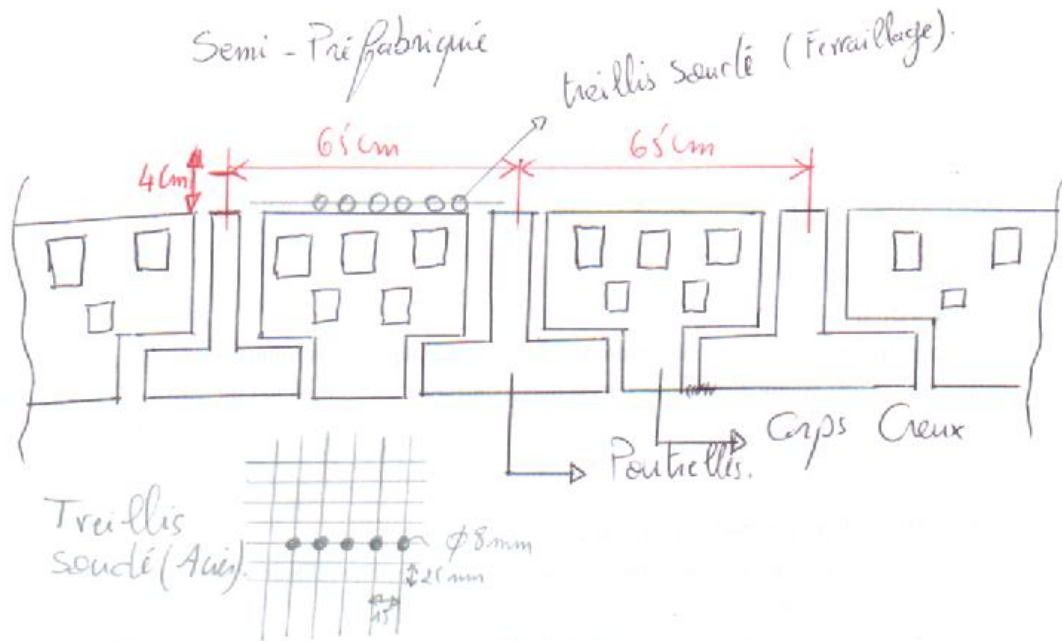 Semi-Préfabriqué
treillis soudé (Ferraillage).
65cm
65cm
4cm
Corps Creux
Poutrelles.
Treillis
soudé (Acier).
ϕ 8mm
15